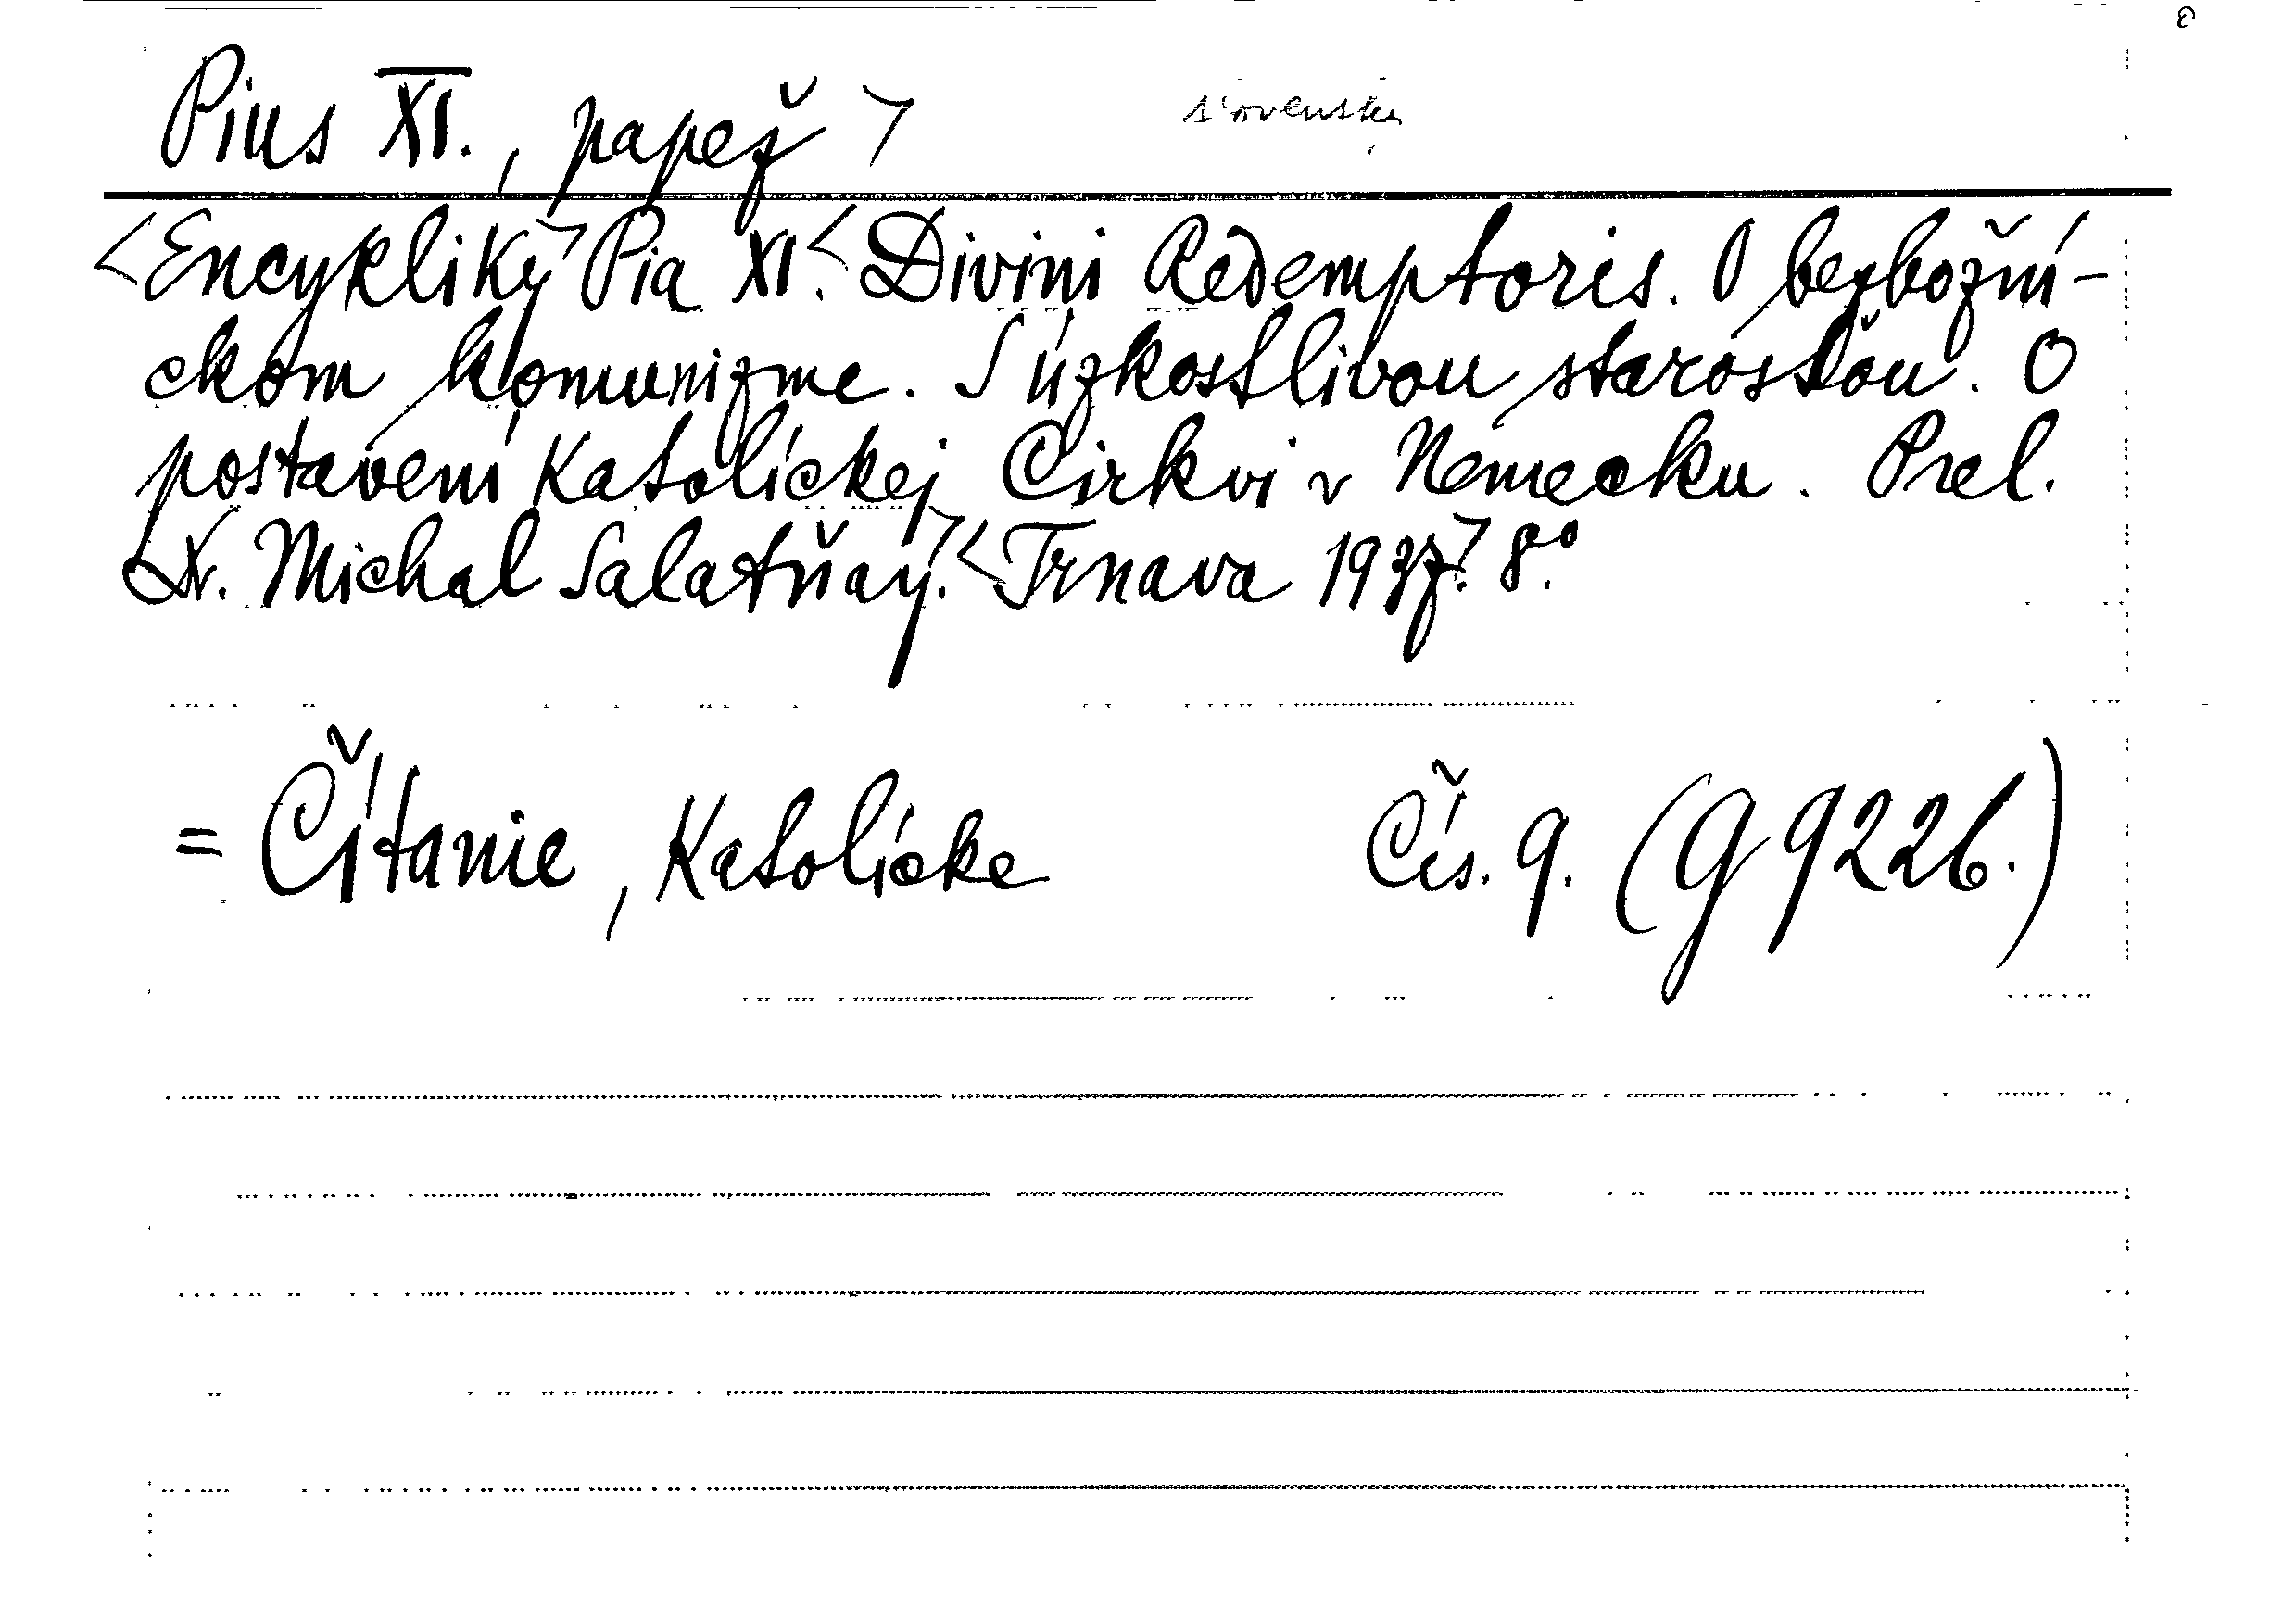 Pius XI., papež > slovensky
<Encykliky> Pia XI.< Divini Redemptoris. O bezbožní-
ckom komunizme. S úzkostlivou starosťou. O
postavení Katolíckej Cirkvi v Nemecku. Prel.
Dr. Michal Salatňay.> <Trnava 1937>. 8.°
= Čítanie, Katolícke Čís. 9. (G 9226.)